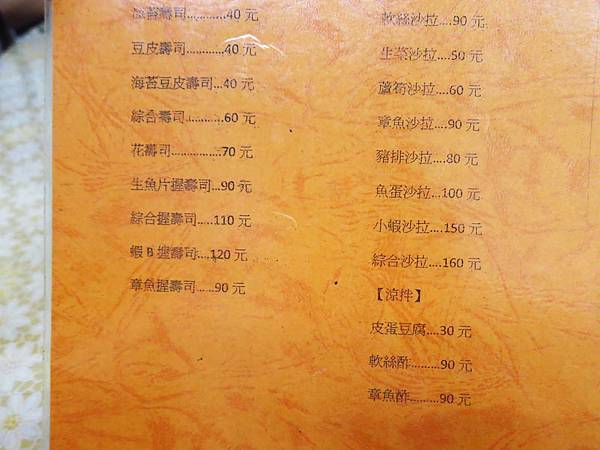 海苔壽司............40 元
豆皮壽司............40 元
海苔豆皮壽司...40 元
綜合壽司............60 元
花壽司................70 元
生魚片握壽司...90 元
綜合握壽司.....110 元
蝦 B 握壽司....120 元
章魚握壽司......90 元
軟絲沙拉....90 元
生菜沙拉....50 元
蘆筍沙拉....60 元
章魚沙拉....90 元
豬排沙拉....80 元
魚蛋沙拉...100 元
小蝦沙拉...150 元
綜合沙拉....160 元
【涼拌】
皮蛋豆腐....30 元
軟絲酢.........90 元
章魚酢.........90 元